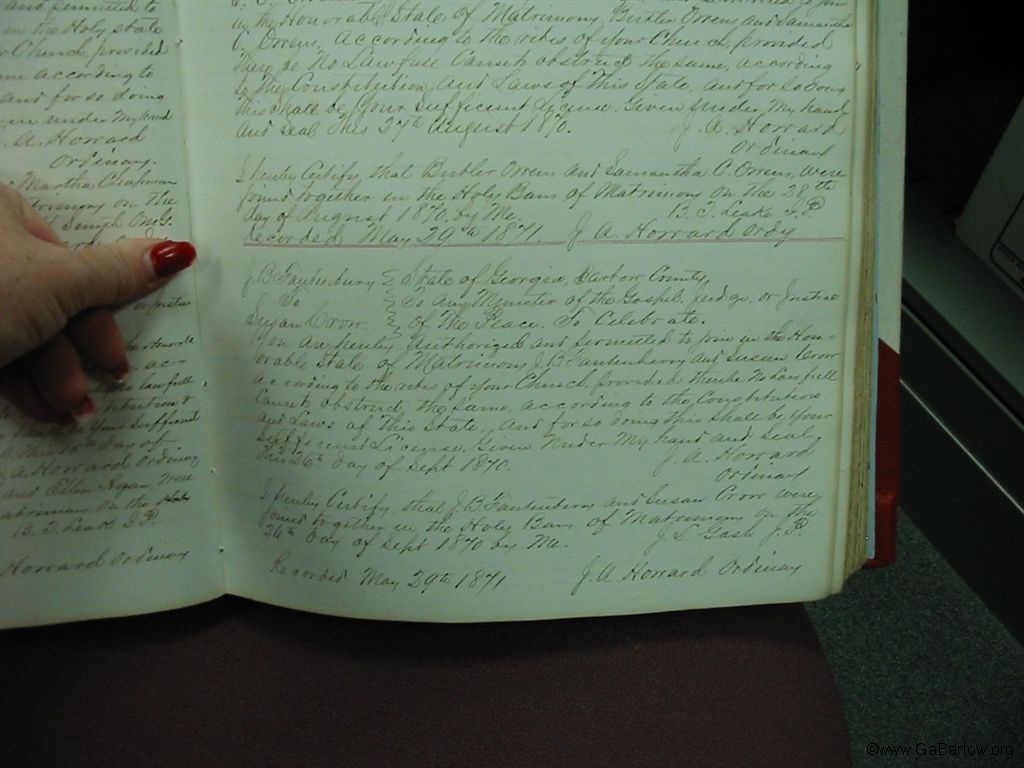 and permitted to
in the Holy state
Church, provided
according to
and for so doing
under my hand
A. Howard
Ordinary.
Martha Chapman
on the
Smith
ac-
lawfull
Constitution &
your Sufficient
day of
A Howard Ordinary
and Ellen Agan, were
on the
B. T. Leake J.P.
Howard Ordinary
in the Honorable State of Matrimony, Butler Owens and Samantha
C. Owens, According to the rites of your Church, provided
there be No Lawfull Cause to obstruct the same, according
to the Constitution and Laws of this State, and for so doing
this shall be your Sufficient License. Given under my hand
and seal this 27th August 1870.
J. A. Howard
Ordinary
I hereby Certify, that Butler Owens and Samantha C. Owens, were
joined together in the Holy Bans of Matrimony on the 28th
day of August 1870 by Me.
B. T. Leake J.P.
Recorded May 29th 1871. J A. Howard Ordy
J. B. Fautenbury State of Georgia, Bartow County
To To any Minister of the Gospel, Judge, or Justice
Susan Crow of the Peace. To Celebrate.
You are hereby Authorized and permitted to join in the Hon-
orable State of Matrimony J. B. Fautenberry and Susan Crow
According to the rites of your Church, provided there be No Lawfull
Cause to obstruct the same according to the Constitution
and Laws of this State, and for so doing this shall be your
sufficient License, Given under My hand and seal
this 26th day of Sept 1870.
J. A. Howard
Ordinary
I hereby Certify, that J. B. Fautenbury and Susan Crow were
joined together in the Holy Bans of Matrimony on the
26th Day of Sept 1870 by Me.
J. L. Gash J.P.
Recorded May 29th 1871 J. A Howard Ordinary
©www.GaBartow.org